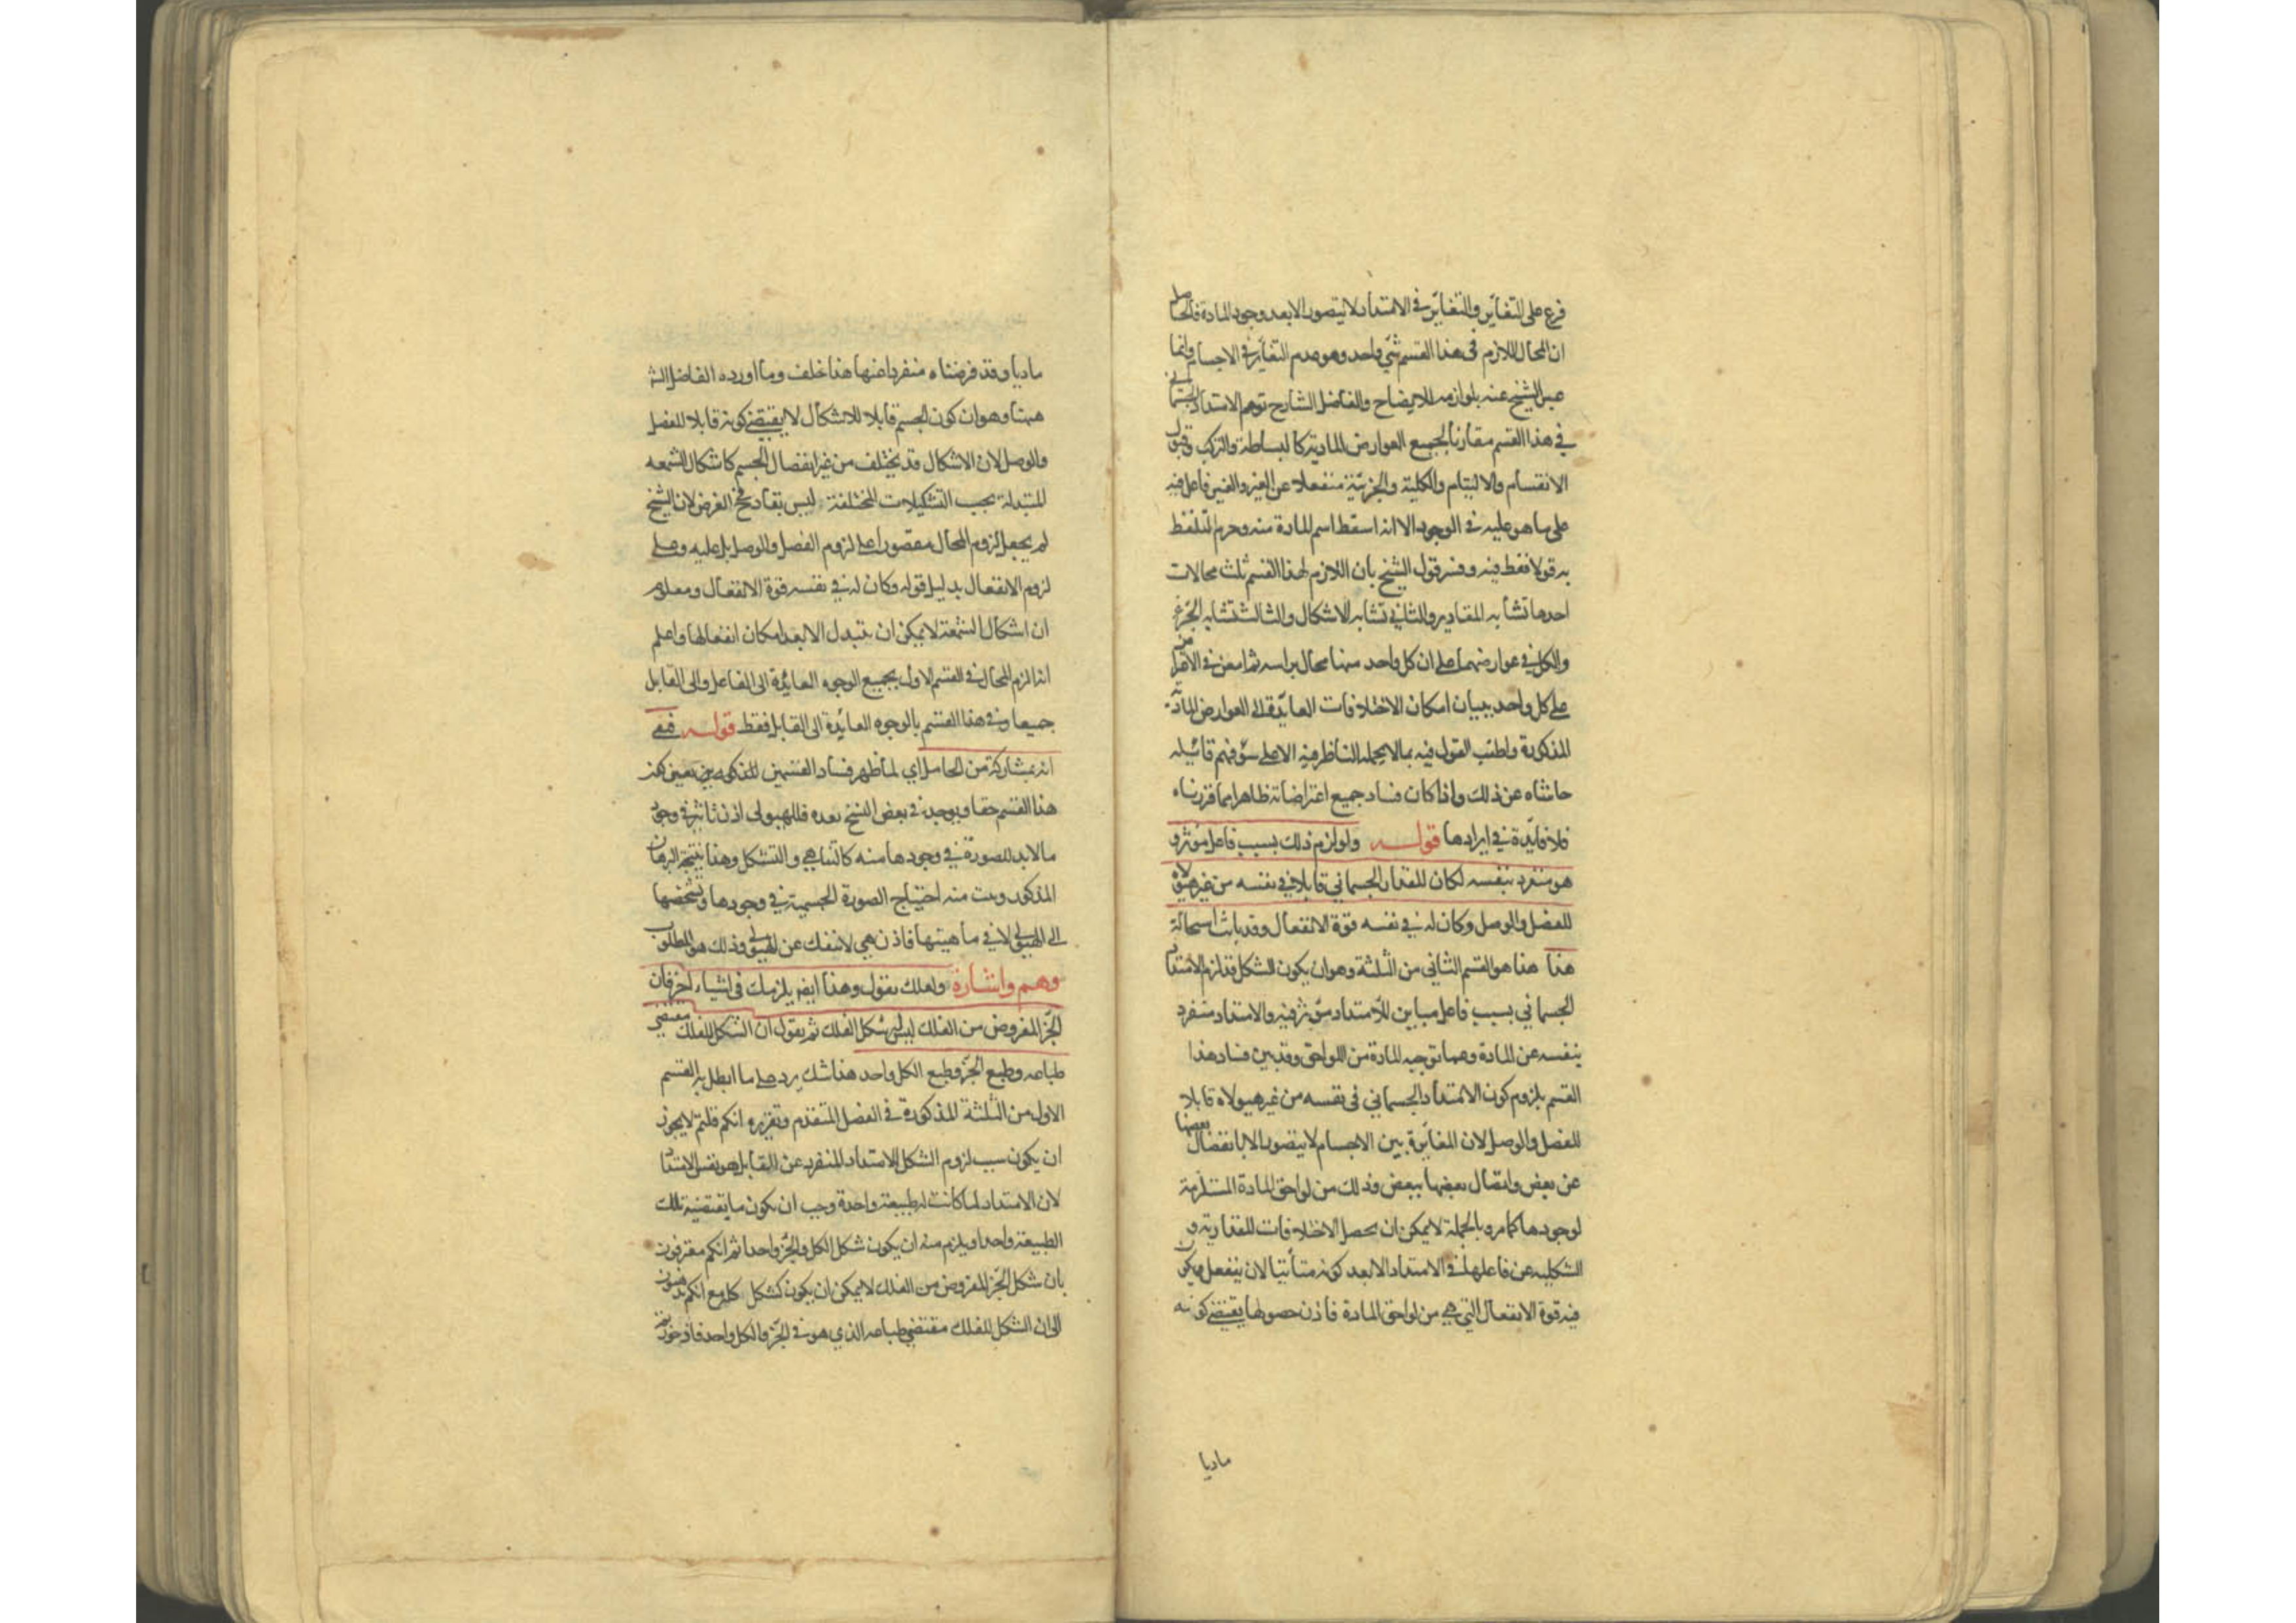 فرع على التغاير والتغاير في الامتداد لا يتصور الا بعد وجود المادة فالحاصل
ان المحال اللازم في هذا القسم شئ واحد وهو عدم التغاير في الاجسام وانما
عبر الشيخ عنه بلوازمه للايضاح والفاضل الشارح توهم الامتداد الجسماني
في هذا القسم مقارنا لجميع العوارض المادية كالبساطة والتركب وقبول
الانقسام والالتيام والكلية والجزئية منفعلا عن الغير والغير فاعل فيه
على ما هو عليه في الوجود الا انه اسقط اسم المادة منه وحرم التلفظ
به قولا فقط فيه وفسر قول الشيخ بان اللازم لهذا القسم ثلث محالات
احدها تشابه المقادير والثاني تشابه الاشكال والثالث تشابه الجزء
والكل في عوارضهما على ان كل واحد منها محال براسه ثم امعن في الاعتراض
على كل واحد ببيان امكان الاختلافات العايدة الى العوارض المادية
المذكورة واطنب القول فيه بما لا يحمله الناظر فيه الا على سوء فهم قائيله
حاشاه عن ذلك واذا كان فساد جميع اعتراضاته ظاهرا مما قررناه
فلا فايدة في ايرادها قوله ولو لزم ذلك بسبب فاعل مؤثر و
هو منفرد بنفسه لكان للمقدار الجسماني قابلا في نفسه من غير هيولاه
للفصل والوصل وكان له في نفسه قوة الانفعال وقد بانت استحالة
هذا هذا هو القسم الثاني من الثلثة وهو ان يكون الشكل قد لزم الامتداد
الجسماني بسبب فاعل مباين للامتداد مؤثر فيه والامتداد منفرد
بنفسه عن المادة وعما توجبه المادة من اللواحق وقد بين فساد هذا
القسم بلزوم كون الامتداد الجسماني في نفسه من غير هيولاه قابلا
للفصل والوصل لان المغايرة بين الاجسام لا يتصور الا بانفصال بعضها
عن بعض واتصال بعضها ببعض وذلك من لواحق المادة المستلزمة
لوجودها كما مر وبالجملة لا يمكن ان يحصل الاختلافات المقدارية و
الشكلية عن فاعلها في الامتداد الا بعد كونه متأتيا لان ينفعل ويكون
فيه قوة الانفعال التي هي من لواحق المادة فاذن حصولها يقتضي كونه
ماديا
ماديا وقد فرضناه منفردا عنها هذا خلف وما اورده الفاضل الش
ههنا وهو ان كون الجسم قابلا للاشكال لا يقتضي كونه قابلا للفصل
والوصل لان الاشكال قد يختلف من غير انفصال الجسم كاشكال الشمعه
المتبدلة بحسب التشكيلات المختلفة ليس بقادح في الغرض لان الشيخ
لم يجعل لزوم المحال مقصورا على لزوم الفصل والوصل بل عليه وعلى
لزوم الانفعال بدليل قوله وكان له في نفسه قوة الانفعال ومعلوم
ان اشكال الشمعة لا يمكن ان يتبدل الا بعد امكان انفعالها واعلم
انه الزم المحال في القسم الاول بجميع الوجوه العايدة الى الفاعل والى القابل
جميعا وفي هذا القسم بالوجوه العايدة الى القابل فقط قوله فبقى
انه بمشاركة من الحامل اي لما ظهر فساد القسمين المذكورين تعين كون
هذا القسم حقا ويوجد في بعض النسخ بعده فللهيولى اذن تاثير في وجود
ما لابد للصورة في وجودها منه كالتناهي والتشكل وهذا نتيجة البرهان
المذكور وبت منه احتياج الصورة الجسمية في وجودها وتشخصها
الى الهيولى لا في ماهيتها فاذن هي لا تنفك عن الهيولى وذلك هو المطلوب
وهم واشارة ولعلك تقول وهذا ايضا يلزمك في اشياء اخر فان
الجزء المفروض من الفلك ليس له شكل الفلك ثم يقول ان الشكل للفلك مقتضى
طباعه وطبع الجزء وطبع الكل واحد هذا شك يرد على ما ابطل به القسم
الاول من الثلثة المذكورة في الفصل المتقدم وتقريره انكم قلتم لا يجوز
ان يكون سبب لزوم الشكل للامتداد المنفرد عن القابل هو نفس الامتداد
لان الامتداد لما كانت له طبيعة واحدة وجب ان يكون ما يقتضيه تلك
الطبيعة واحدا ويلزم منه ان يكون شكل الكل والجزء واحدا ثم انكم معترفون
بان شكل الجزء المفروض من الفلك لا يمكن ان يكون كشكل كله مع انكم تذهبون
الى ان الشكل للفلك مقتضى طباعه الذي هو في الجزء والكل واحد فاذ جوزتم